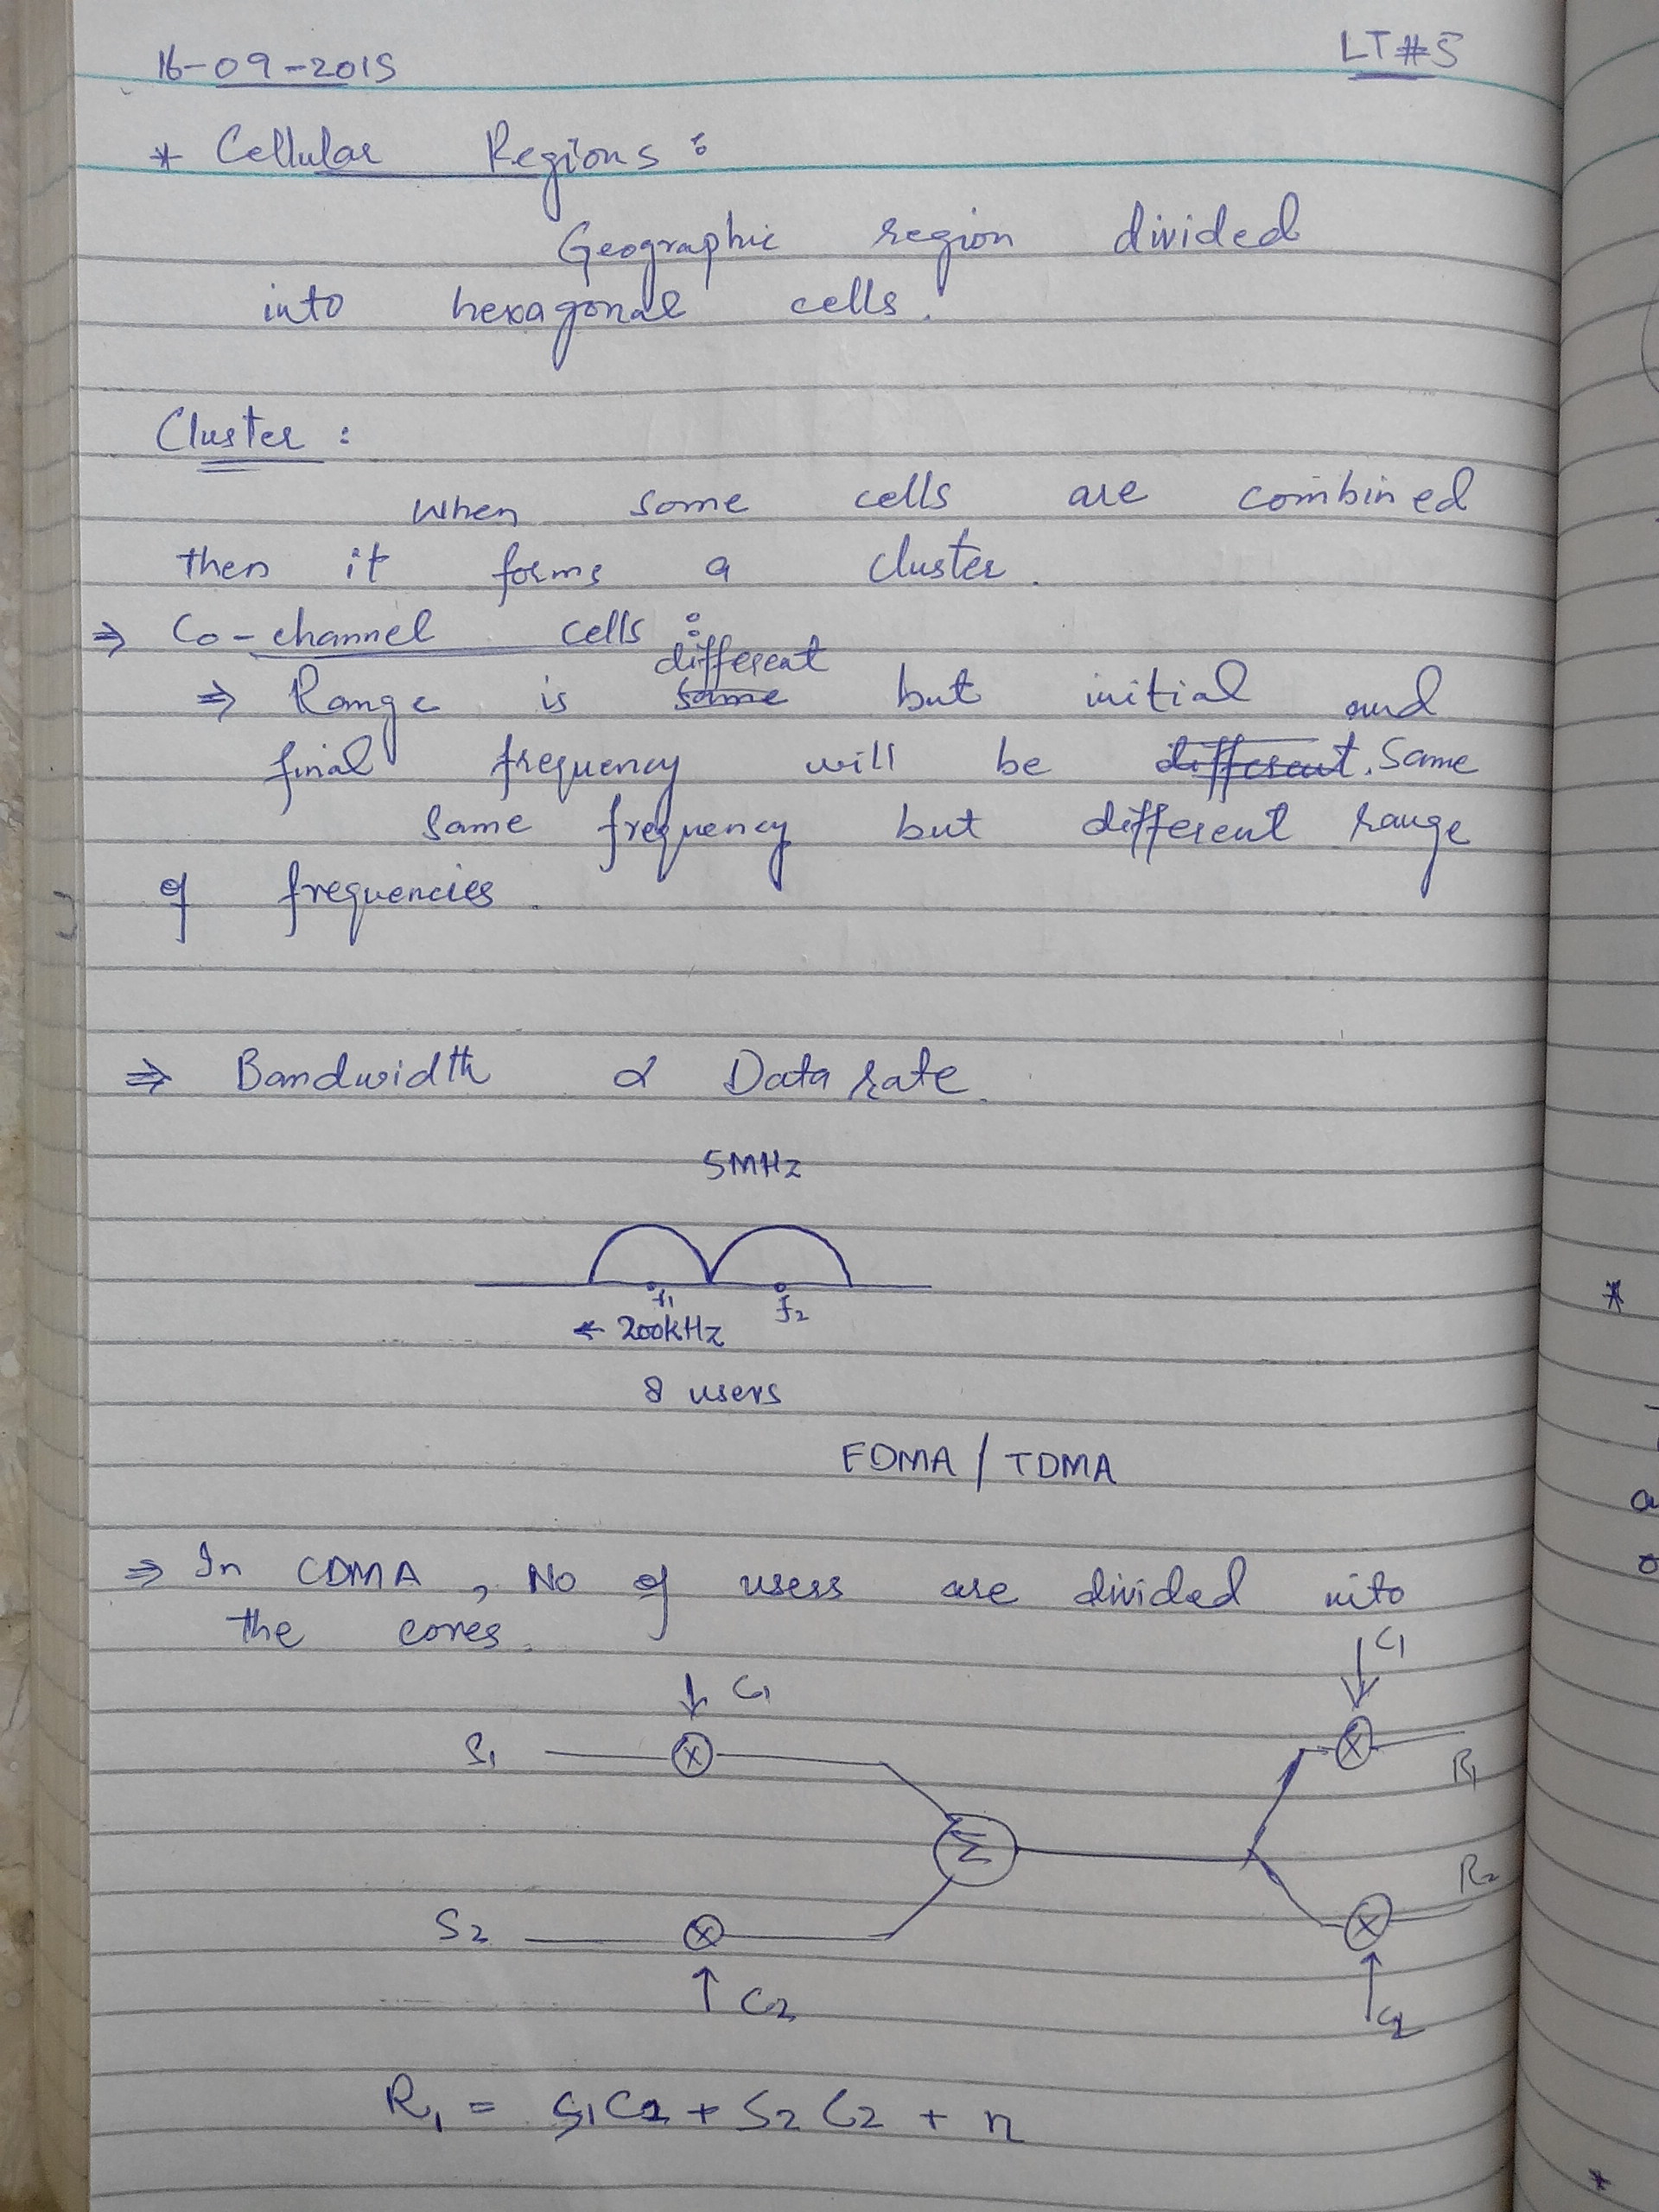 16-09-2015
LT#5
* Cellular Regions :
Geographic region divided
into hexagonal cells.
Cluster :
When some cells are combined
then it forms a cluster.
⇒ Co-channel cells :
different
⇒ Range is same but initial and
final frequency will be different. Same
Same frequency but different range
of frequencies.
⇒ Bandwidth α Data rate.
5MHz
f1 f2
← 200kHz
8 users
FDMA / TDMA
⇒ In CDMA, No of users are divided into
the cores.
C1
C1
S1
R1
Σ
R2
S2
C2
C2
R1 = S1C1 + S2C2 + n